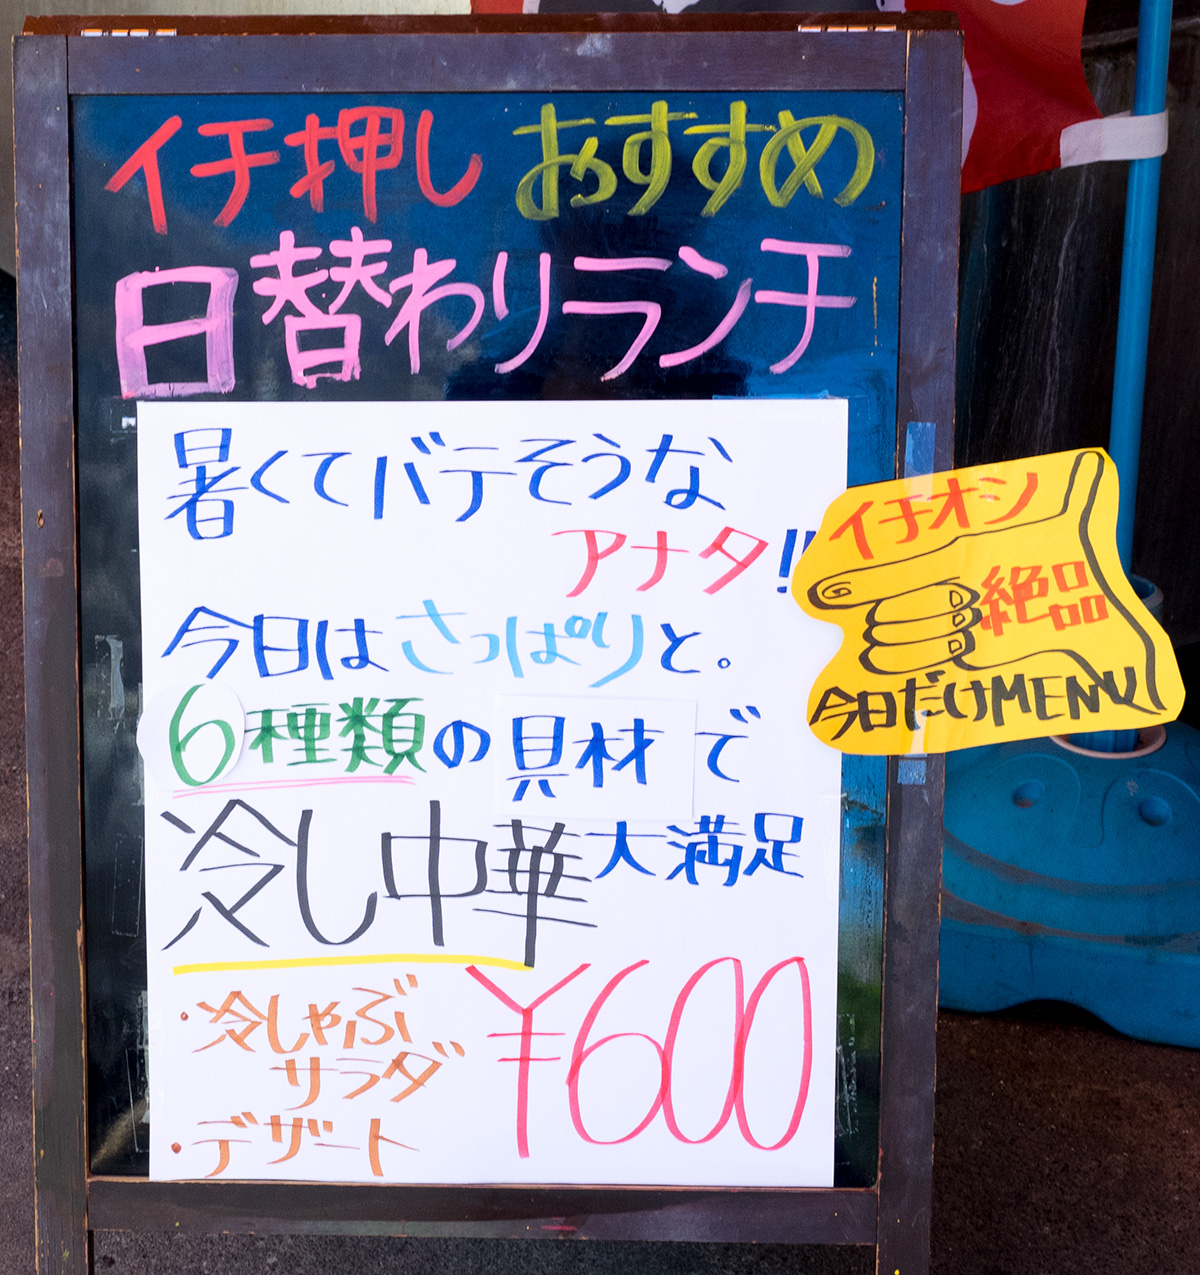 イチ押し おすすめ
日替わりランチ
暑くてバテそうな
アナタ!!
今日はさっぱりと。
6種類の具材で
冷し中華大満足
・冷しゃぶ
サラダ
・デザート
¥600
イチオシ
絶品
今日だけMENU